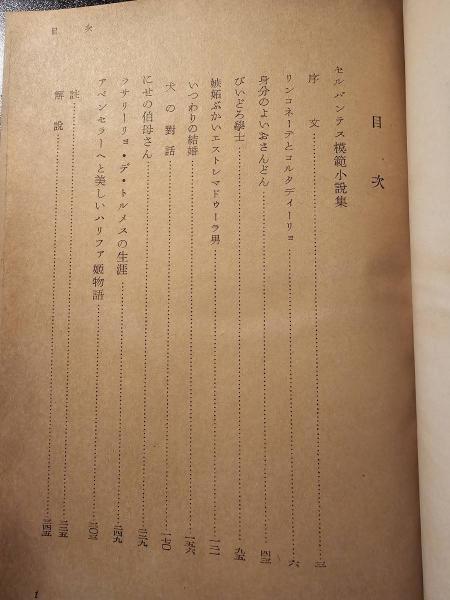 目次
目次
セルバンテス模範小説集
序文……三
リンコネーテとコルタディーリョ……六
身分のよいおさんどん……四三
びいどろ學士……九五
嫉妬ぶかいエストレマドゥーラ男……一二一
いつわりの結婚……一五六
犬の對話……一七〇
にせの伯母さん……二二九
ラサリーリョ・デ・トルメスの生涯……二四九
アベンセラーヘと美しいハリファ姫物語……三〇三
註……三三五
解説……三四五
1